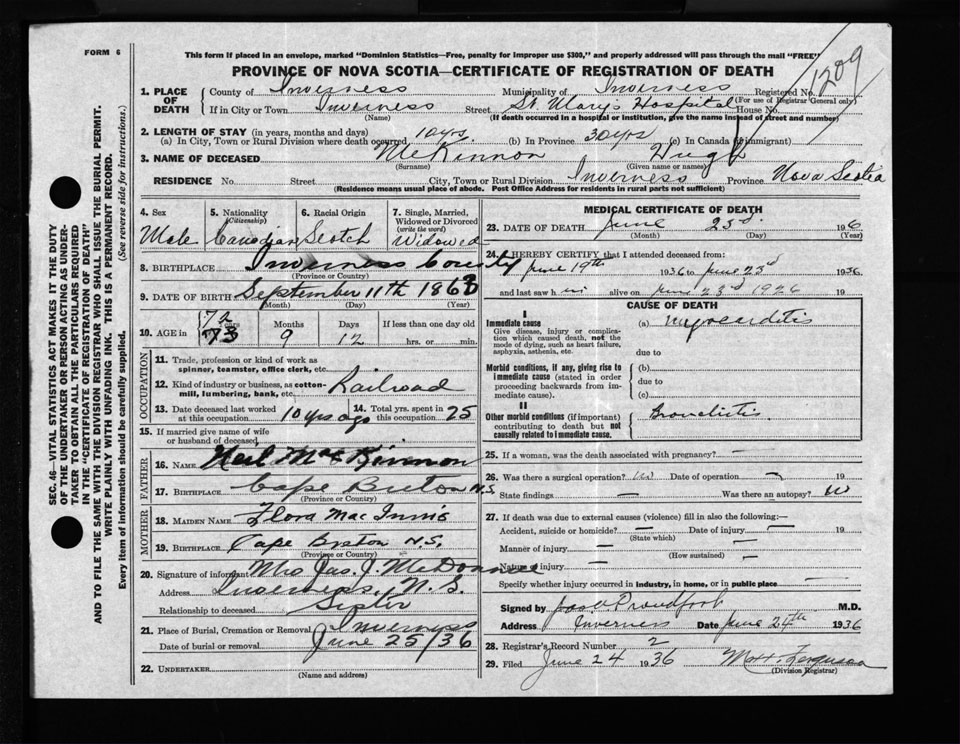 FORM 6
This form if placed in an envelope, marked "Dominion Statistics—Free, penalty for improper use $300," and properly addressed will pass through the mail "FREE"
PROVINCE OF NOVA SCOTIA—CERTIFICATE OF REGISTRATION OF DEATH
1209
1. PLACE OF DEATH { County of Inverness Municipality of Inverness Registered No.
If in City or Town Inverness Street St. Mary's Hospital House No. (For use of Registrar General only)
(Name) (If death occurred in a hospital or institution, give the name instead of street and number)
2. LENGTH OF STAY (in years, months and days)
(a) In City, Town or Rural Division where death occurred 10 yrs. (b) In Province 30 yrs (c) In Canada (if immigrant)
3. NAME OF DECEASED McKinnon Hugh
(Surname) (Given name or names)
RESIDENCE No. Street City, Town or Rural Division Inverness Province Nova Scotia
(Residence means usual place of abode. Post Office Address for residents in rural parts not sufficient)
4. Sex Male
5. Nationality (Citizenship) Canadian
6. Racial Origin Scotch
7. Single, Married, Widowed or Divorced (write the word) Widowed
8. BIRTHPLACE Inverness County
(Province or Country)
9. DATE OF BIRTH September 11th 1863
(Month) (Day) (Year)
10. AGE in { 72 73 Years Months 9 Days 12 If less than one day old hrs. or min.
OCCUPATION
11. Trade, profession or kind of work as spinner, teamster, office clerk, etc.
12. Kind of industry or business, as cotton-mill, lumbering, bank, etc. Railroad
13. Date deceased last worked at this occupation 10 yrs ago
14. Total yrs. spent in this occupation 25
15. If married give name of wife or husband of deceased
FATHER
16. NAME Neil MacKinnon
17. BIRTHPLACE Cape Breton N.S.
(Province or Country)
MOTHER
18. MAIDEN NAME Flora MacInnis
19. BIRTHPLACE Cape Breton N.S.
(Province or Country)
20. Signature of informant Mrs Jas. J.
Address Inverness, N.S.
Relationship to deceased Sister
21. Place of Burial, Cremation or Removal Inverness
Date of burial or removal June 25/36
22. UNDERTAKER
(Name and address)
MEDICAL CERTIFICATE OF DEATH
23. DATE OF DEATH June 23rd. 1936
(Month) (Day) (Year)
24. I HEREBY CERTIFY that I attended deceased from:
June 19th 1936 to June 23rd 1936.
and last saw him alive on June 23rd 1926 19
CAUSE OF DEATH
I
Immediate cause
Give disease, injury or complication which caused death, not the mode of dying, such as heart failure, asphyxia, asthenia, etc.
(a) Myocarditis
due to
Morbid conditions, if any, giving rise to immediate cause (stated in order proceeding backwards from immediate cause).
(b)
due to
(c)
II
Other morbid conditions (if important) contributing to death but not causally related to immediate cause.
Bronchitis
25. If a woman, was the death associated with pregnancy? —
26. Was there a surgical operation? no Date of operation — 19
State findings — Was there an autopsy? no
27. If death was due to external causes (violence) fill in also the following:—
Accident, suicide or homicide? — Date of injury — 19
(State which)
Manner of injury — —
(How sustained)
Nature of injury —
Specify whether injury occurred in industry, in home, or in public place —
Signed by Jas A Proudfoot M.D.
Address Inverness Date June 24th 1936
28. Registrar's Record Number 2
29. Filed June 24 1936 Ferguson
(Division Registrar)
SEC. 46—VITAL STATISTICS ACT MAKES IT THE DUTY
OF THE UNDERTAKER OR PERSON ACTING AS UNDER-
TAKER TO OBTAIN ALL THE PARTICULARS REQUIRED
IN THE "CERTIFICATE OF REGISTRATION OF DEATH"
AND TO FILE THE SAME WITH THE DIVISION REGISTRAR WHO SHALL ISSUE THE BURIAL PERMIT.
WRITE PLAINLY WITH UNFADING INK. THIS IS A PERMANENT RECORD.
Every item of information should be carefully supplied. (See reverse side for instructions.)